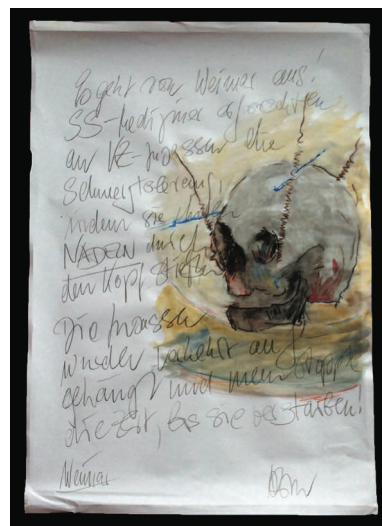 Es geht von Weimar aus!
SS-Mediziner erforschten
an KZ-Insassen die
Schmerztoleranz,
indem sie ihnen
NADELN durch
den Kopf stießen
Die Insassen
wurden verkehrt auf
gehängt und man stoppte
die Zeit, bis sie verstarben!
Weimar